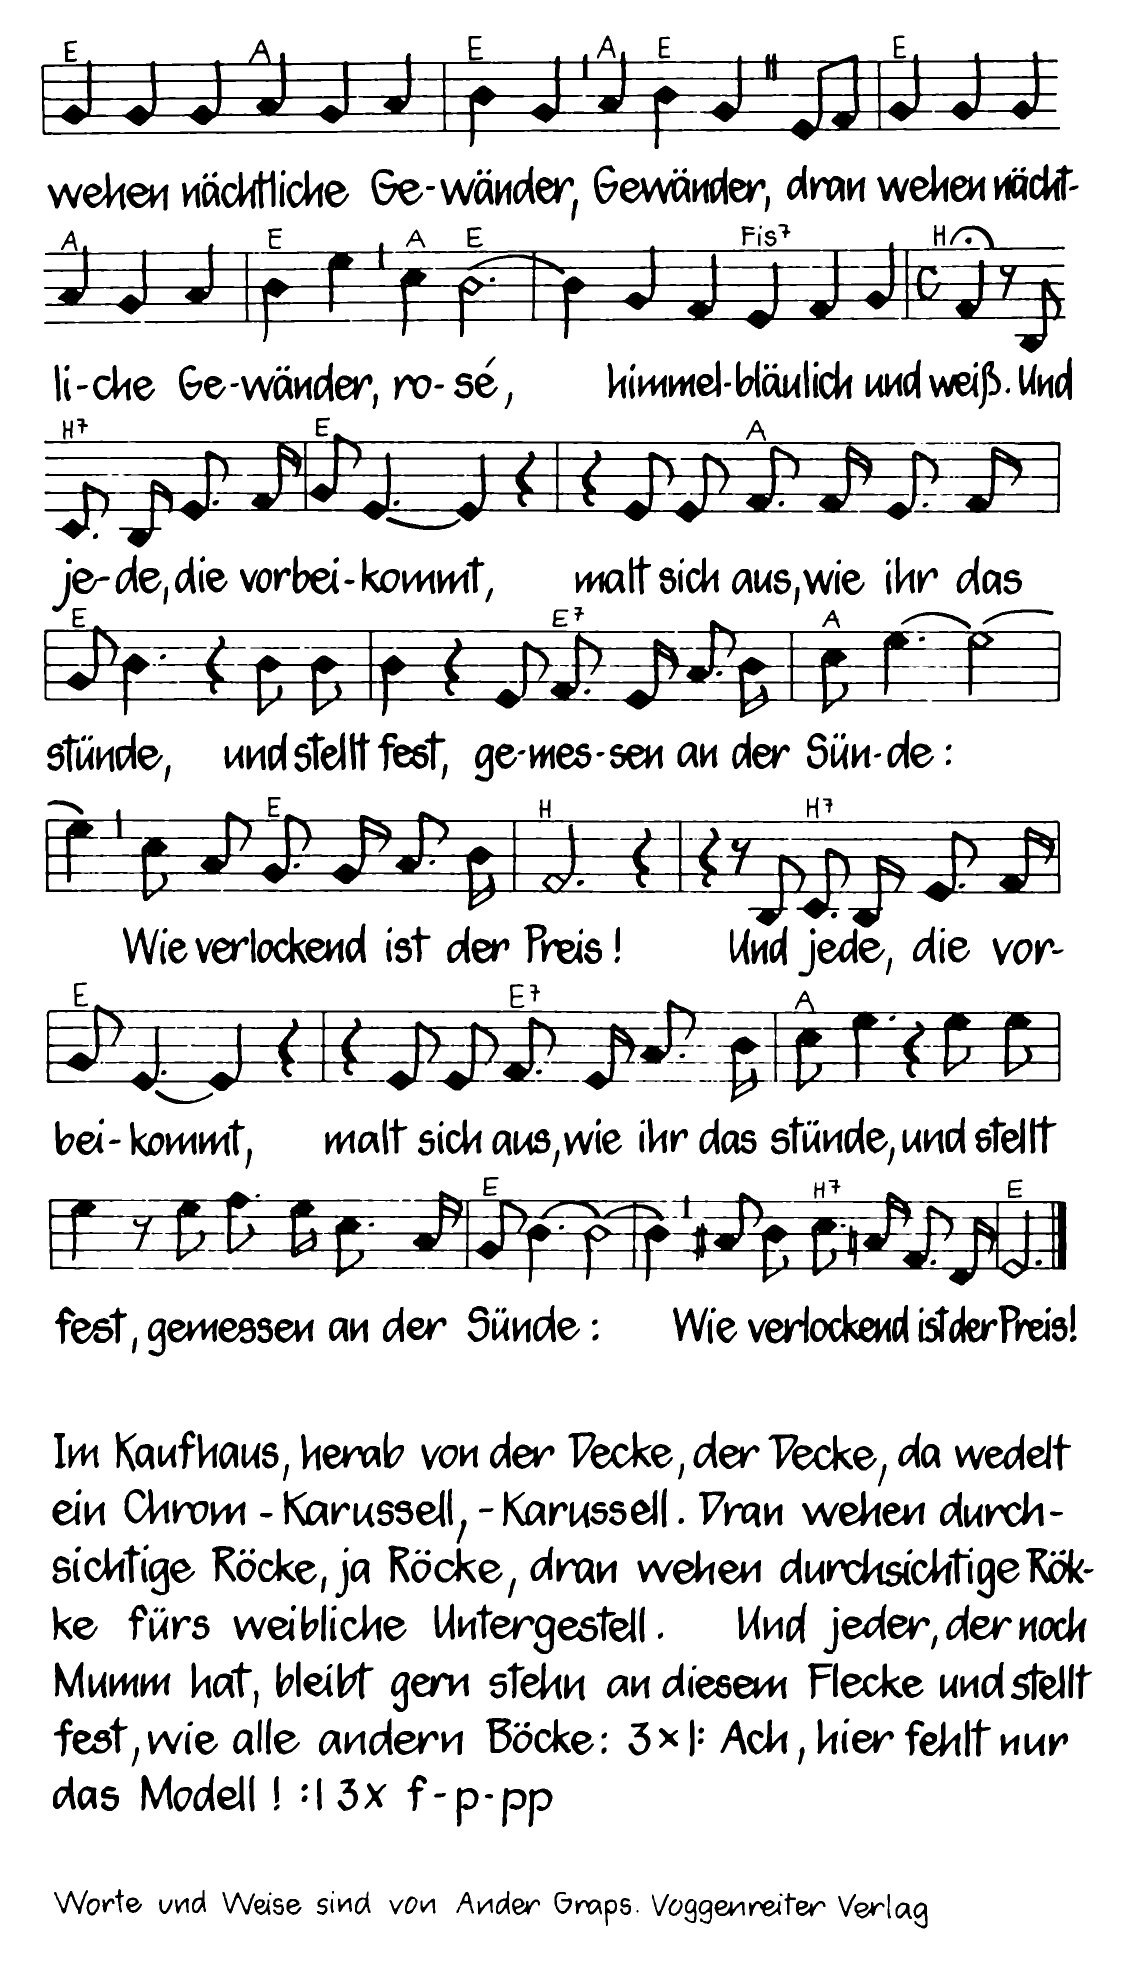 E A E A E E
wehen nächtliche Ge-wänder, Gewänder, dran wehen nächt-
A E A E Fis7 H
li-che Ge-wänder, ro-sé, himmel-bläulich und weiß. Und
H7 E A
je-de, die vorbei-kommt, malt sich aus, wie ihr das
E E7 A
stünde, und stellt fest, ge-mes-sen an der Sün-de:
E H H7
Wie verlockend ist der Preis! Und jede, die vor-
E E7 A
bei-kommt, malt sich aus, wie ihr das stünde, und stellt
E H7 E
fest, gemessen an der Sünde: Wie verlockend ist der Preis!
Im Kaufhaus, herab von der Decke, der Decke, da wedelt
ein Chrom-Karussell, -Karussell. Dran wehen durch-
sichtige Röcke, ja Röcke, dran wehen durchsichtige Rök-
ke fürs weibliche Untergestell. Und jeder, der noch
Mumm hat, bleibt gern stehn an diesem Flecke und stellt
fest, wie alle andern Böcke: 3x|: Ach, hier fehlt nur
das Modell! :| 3x f-p-pp
Worte und Weise sind von Ander Graps. Voggenreiter Verlag